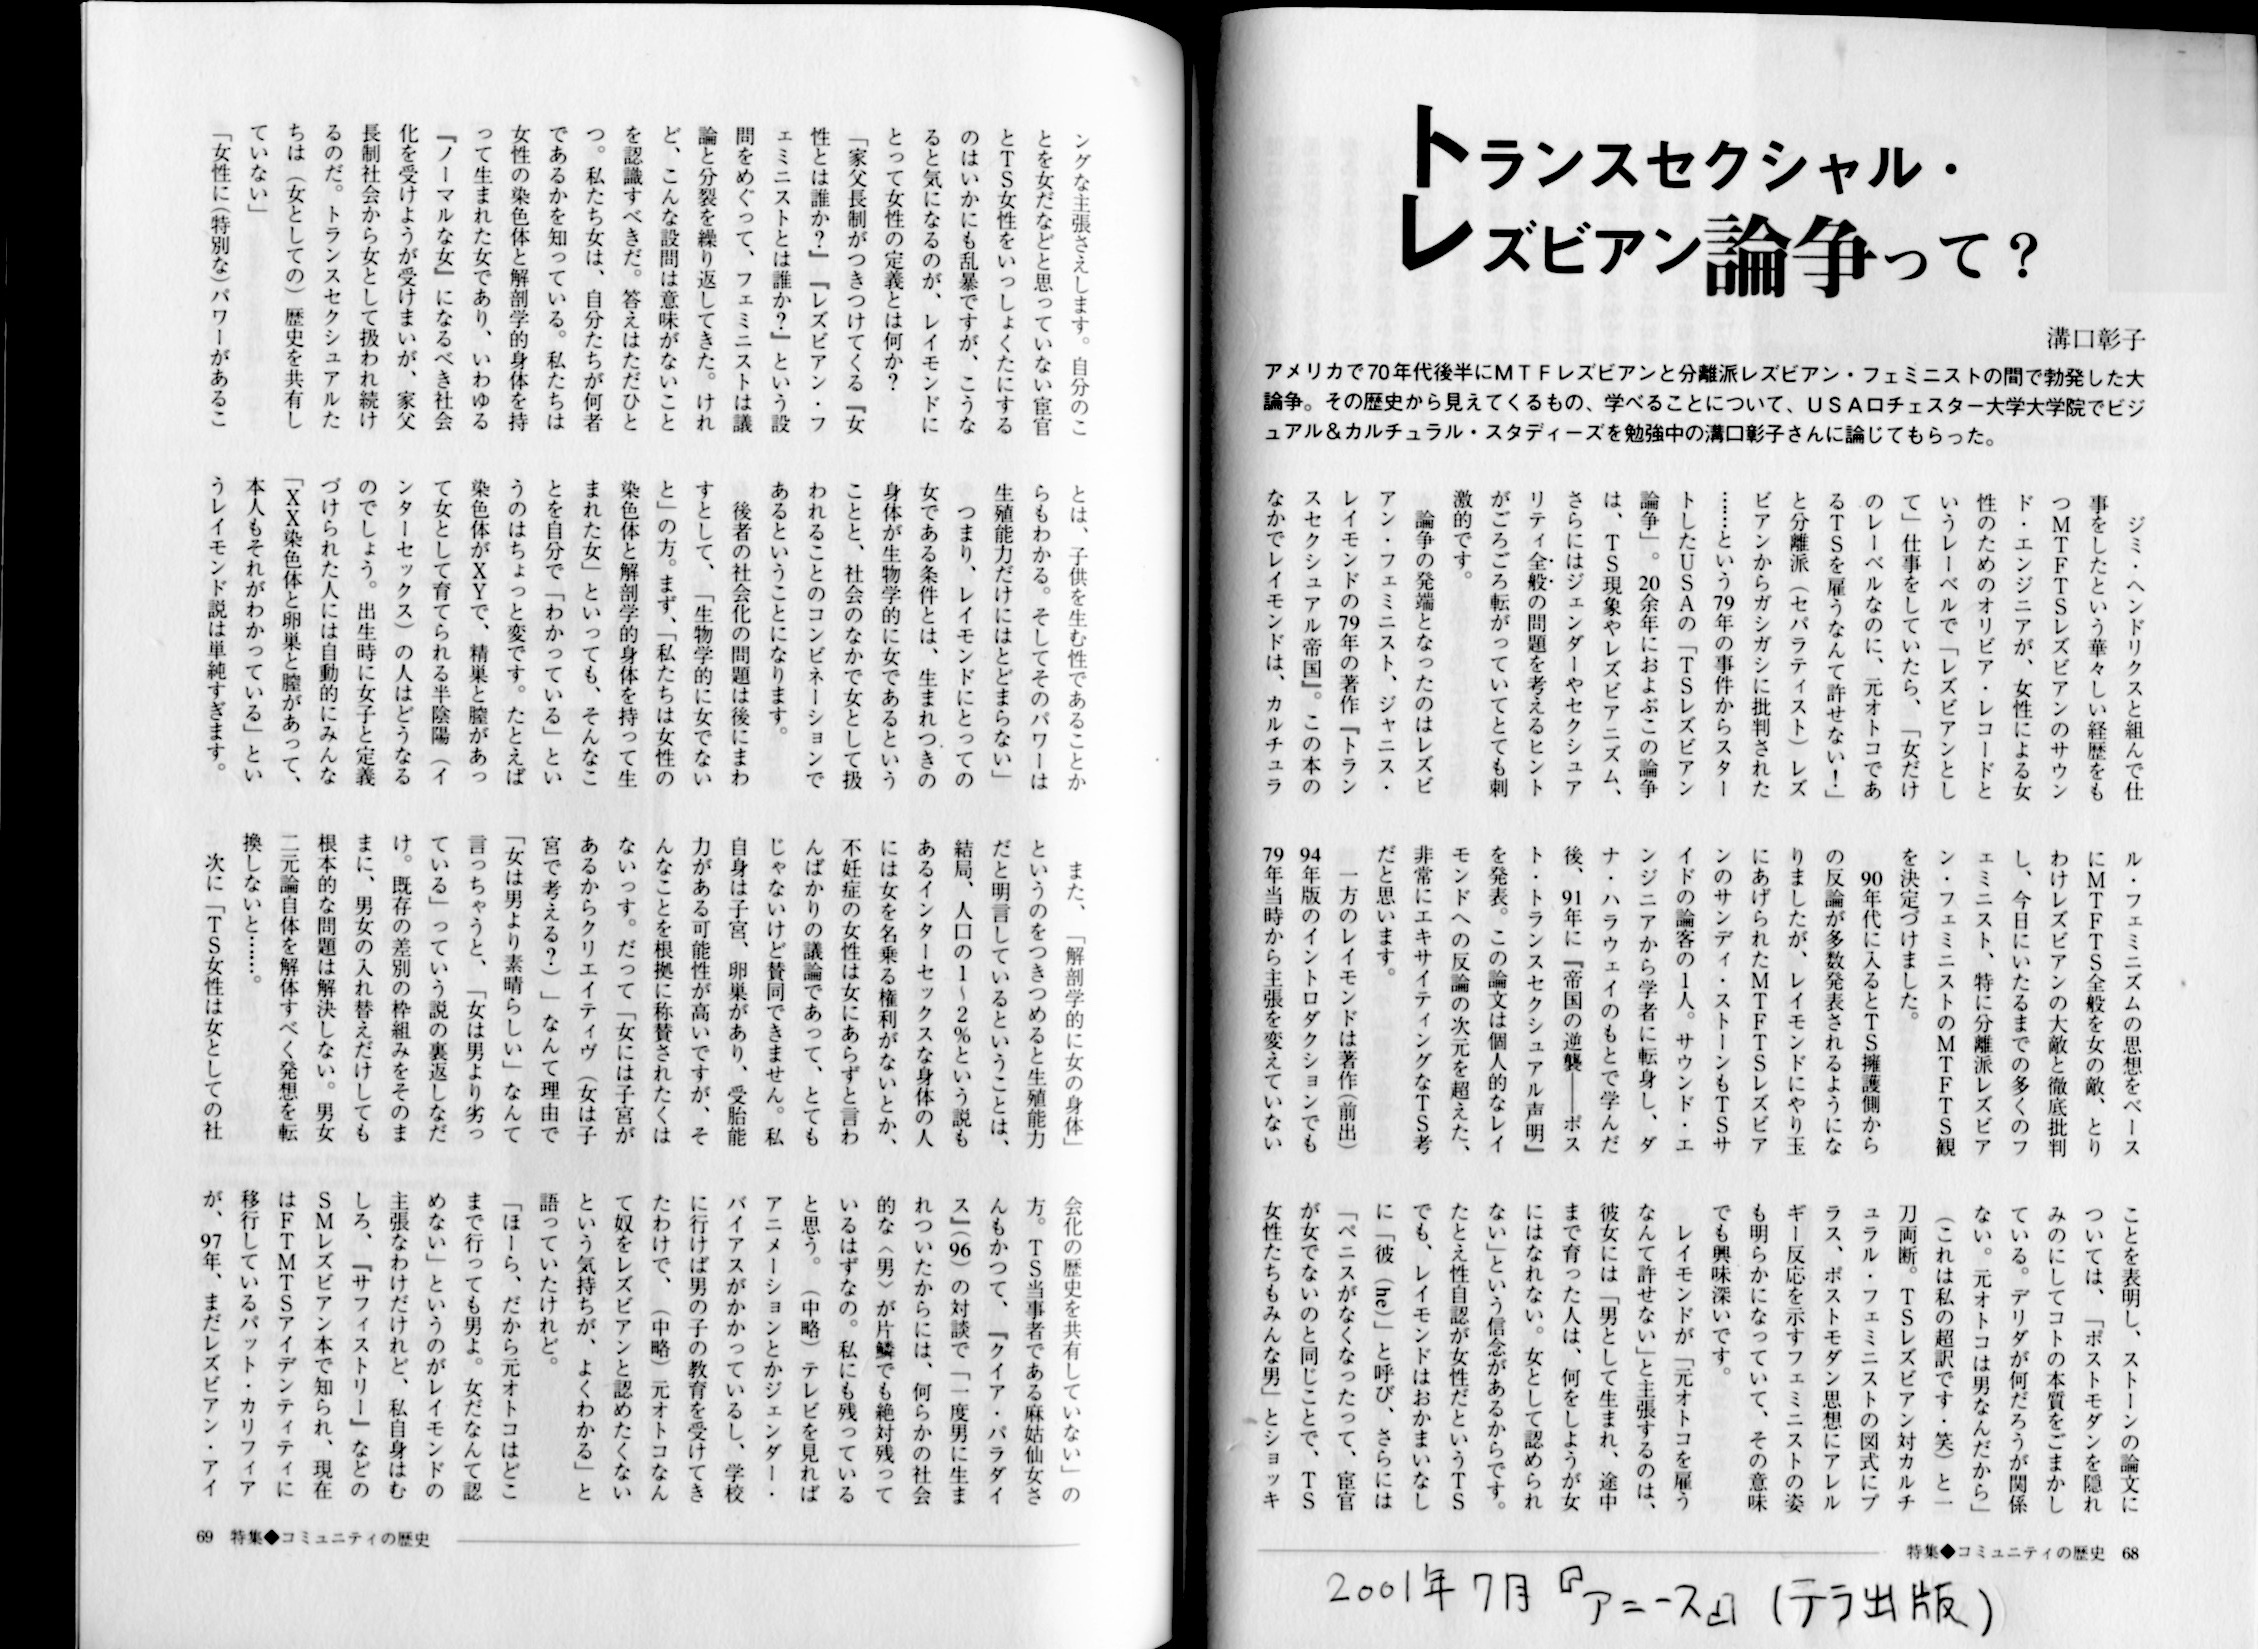 トランスセクシャル・
レズビアン論争って？
溝口彰子
アメリカで70年代後半にＭＴＦレズビアンと分離派レズビアン・フェミニストの間で勃発した大
論争。その歴史から見えてくるもの、学べることについて、ＵＳＡロチェスター大学大学院でビジ
ュアル＆カルチュラル・スタディーズを勉強中の溝口彰子さんに論じてもらった。
ジミ・ヘンドリクスと組んで仕
事をしたという華々しい経歴をも
つＭＴＦＴＳレズビアンのサウン
ド・エンジニアが、女性による女
性のためのオリビア・レコードと
いうレーベルで「レズビアンとし
て」仕事をしていたら、「女だけ
のレーベルなのに、元オトコであ
るＴＳを雇うなんて許せない！」
と分離派（セパラティスト）レズ
ビアンからガシガシに批判された
……という79年の事件からスター
トしたＵＳＡの「ＴＳレズビアン
論争」。20余年におよぶこの論争
は、ＴＳ現象やレズビアニズム、
さらにはジェンダーやセクシュア
リティ全般の問題を考えるヒント
がごろごろ転がっていてとても刺
激的です。
論争の発端となったのはレズビ
アン・フェミニスト、ジャニス・
レイモンドの79年の著作『トラン
スセクシュアル帝国』。この本の
なかでレイモンドは、カルチュラ
ル・フェミニズムの思想をベース
にＭＴＦＴＳ全般を女の敵、とり
わけレズビアンの大敵と徹底批判
し、今日にいたるまでの多くのフ
ェミニスト、特に分離派レズビア
ン・フェミニストのＭＴＦＴＳ観
を決定づけました。
90年代に入るとＴＳ擁護側から
の反論が多数発表されるようにな
りましたが、レイモンドにやり玉
にあげられたＭＴＦＴＳレズビア
ンのサンディ・ストーンもＴＳサ
イドの論客の１人。サウンド・エ
ンジニアから学者に転身し、ダ
ナ・ハラウェイのもとで学んだ
後、91年に『帝国の逆襲――ポス
ト・トランスセクシュアル声明』
を発表。この論文は個人的なレイ
モンドへの反論の次元を超えた、
非常にエキサイティングなＴＳ考
だと思います。
一方のレイモンドは著作（前出）
94年版のイントロダクションでも
79年当時から主張を変えていない
ことを表明し、ストーンの論文に
ついては、「ポストモダンを隠れ
みのにしてコトの本質をごまかし
ている。デリダが何だろうが関係
ない。元オトコは男なんだから」
（これは私の超訳です・笑）と一
刀両断。ＴＳレズビアン対カルチ
ュラル・フェミニストの図式にプ
ラス、ポストモダン思想にアレル
ギー反応を示すフェミニストの姿
も明らかになっていて、その意味
でも興味深いです。
レイモンドが「元オトコを雇う
なんて許せない」と主張するのは、
彼女には「男として生まれ、途中
まで育った人は、何をしようが女
にはなれない。女として認められ
ない」という信念があるからです。
たとえ性自認が女性だというＴＳ
でも、レイモンドはおかまいなし
に「彼（he）」と呼び、さらには
「ペニスがなくなったって、宦官
が女でないのと同じことで、ＴＳ
女性たちもみんな男」とショッキ
特集◆コミュニティの歴史 68
2001年7月『アニース』（テラ出版）
ングな主張さえします。自分のこ
とを女だなどと思っていない宦官
とＴＳ女性をいっしょくたにする
のはいかにも乱暴ですが、こうな
ると気になるのが、レイモンドに
とって女性の定義とは何か？
「家父長制がつきつけてくる『女
性とは誰か？』『レズビアン・フ
ェミニストとは誰か？』という設
問をめぐって、フェミニストは議
論と分裂を繰り返してきた。けれ
ど、こんな設問は意味がないこと
を認識すべきだ。答えはただひと
つ。私たち女は、自分たちが何者
であるかを知っている。私たちは
女性の染色体と解剖学的身体を持
って生まれた女であり、いわゆる
『ノーマルな女』になるべき社会
化を受けようが受けまいが、家父
長制社会から女として扱われ続け
るのだ。トランスセクシュアルた
ちは（女としての）歴史を共有し
ていない」
「女性に（特別な）パワーがあるこ
とは、子供を生む性であることか
らもわかる。そしてそのパワーは
生殖能力だけにはとどまらない」
つまり、レイモンドにとっての
女である条件とは、生まれつきの
身体が生物学的に女であるという
ことと、社会のなかで女として扱
われることのコンビネーションで
あるということになります。
後者の社会化の問題は後にまわ
すとして、「生物学的に女でない
と」の方。まず、「私たちは女性の
染色体と解剖学的身体を持って生
まれた女」といっても、そんなこ
とを自分で「わかっている」とい
うのはちょっと変です。たとえば
染色体がＸＹで、精巣と膣があっ
て女として育てられる半陰陽（イ
ンターセックス）の人はどうなる
のでしょう。出生時に女子と定義
づけられた人には自動的にみんな
「ＸＸ染色体と卵巣と膣があって、
本人もそれがわかっている」とい
うレイモンド説は単純すぎます。
また、「解剖学的に女の身体」
というのをつきつめると生殖能力
だと明言しているということは、
結局、人口の１～２％という説も
あるインターセックスな身体の人
には女を名乗る権利がないとか、
不妊症の女性は女にあらずと言わ
んばかりの議論であって、とても
じゃないけど賛同できません。私
自身は子宮、卵巣があり、受胎能
力がある可能性が高いですが、そ
んなことを根拠に称賛されたくは
ないっす。だって「女には子宮が
あるからクリエイティヴ（女は子
宮で考える？）」なんて理由で
「女は男より素晴らしい」なんて
言っちゃうと、「女は男より劣っ
ている」っていう説の裏返しなだ
け。既存の差別の枠組みをそのま
まに、男女の入れ替えだけしても
根本的な問題は解決しない。男女
二元論自体を解体すべく発想を転
換しないと……。
次に「ＴＳ女性は女としての社
会化の歴史を共有していない」の
方。ＴＳ当事者である麻姑仙女さ
んもかつて、『クイア・パラダイ
ス』（96）の対談で「一度男に生ま
れついたからには、何らかの社会
的な〈男〉が片鱗でも絶対残って
いるはずなの。私にも残っている
と思う。（中略）テレビを見れば
アニメーションとかジェンダー・
バイアスがかかっているし、学校
に行けば男の子の教育を受けてき
たわけで、（中略）元オトコなん
て奴をレズビアンと認めたくない
という気持ちが、よくわかる」と
語っていたけれど。
「ほーら、だから元オトコはどこ
まで行っても男よ。女だなんて認
めない」というのがレイモンドの
主張なわけだけれど、私自身はむ
しろ、『サフィストリー』などの
ＳＭレズビアン本で知られ、現在
はＦＴＭＴＳアイデンティティに
移行しているパット・カリフィア
が、97年、まだレズビアン・アイ
69 特集◆コミュニティの歴史